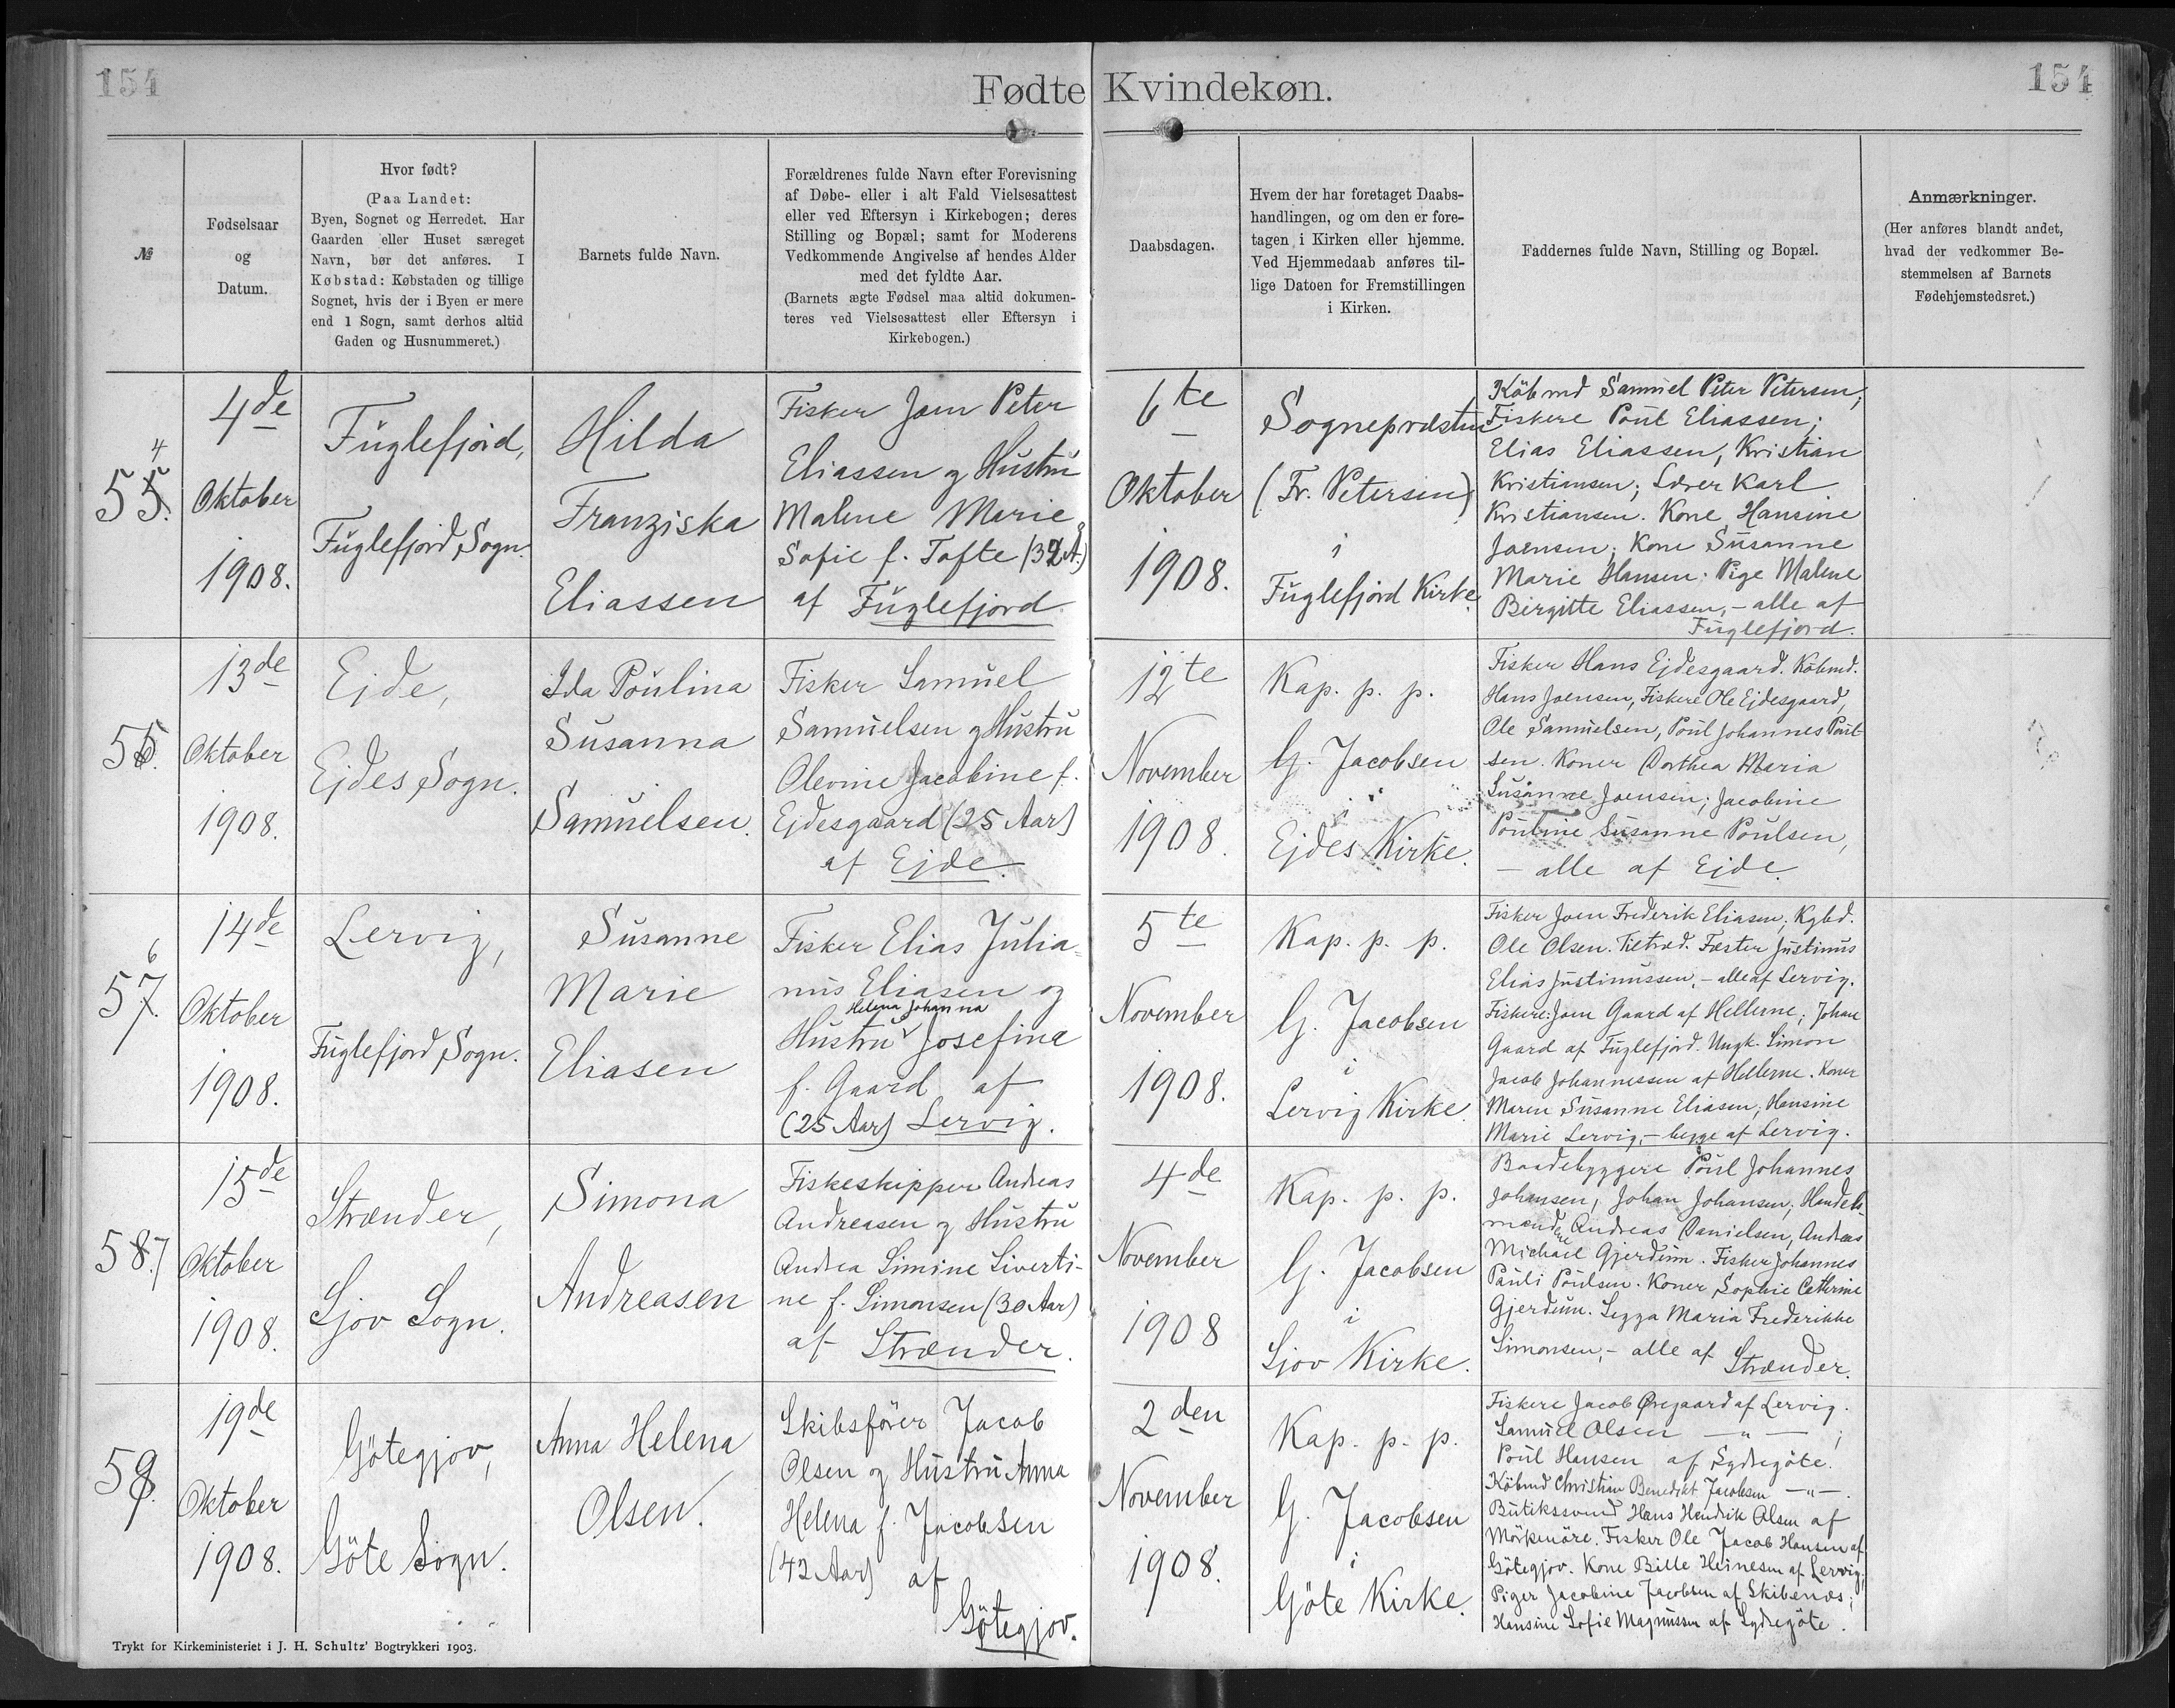 154
Fødte Kvindekøn.
154
№
Fødselsaar
og
Datum.
Hvor født?
(Paa Landet:
Byen, Sognet og Herredet. Har
Gaarden eller Huset særeget
Navn, bør det anføres. I
Købstad: Købstaden og tillige
Sognet, hvis der i Byen er mere
end 1 Sogn, samt derhos altid
Gaden og Husnummeret.)
Barnets fulde Navn.
Forældrenes fulde Navn efter Forevisning
af Døbe- eller i alt Fald Vielsesattest
eller ved Eftersyn i Kirkebogen; deres
Stilling og Bopæl; samt for Moderens
Vedkommende Angivelse af hendes Alder
med det fyldte Aar.
(Barnets ægte Fødsel maa altid dokumen-
teres ved Vielsesattest eller Eftersyn i
Kirkebogen.)
Daabsdagen.
Hvem der har foretaget Daabs-
handlingen, og om den er fore-
tagen i Kirken eller hjemme.
Ved Hjemmedaab anføres til-
lige Datoen for Fremstillingen
i Kirken.
Faddernes fulde Navn, Stilling og Bopæl.
Anmærkninger.
(Her anføres blandt andet,
hvad der vedkommer Be-
stemmelsen af Barnets
Fødehjemstedsret.)
4
55.
4de
Oktober
1908.
Fuglefjord,
Fuglefjord Sogn.
Hilda
Franziska
Eliassen
Fisker Joen Peter
Eliassen og Hustru
Malene Marie
Sofie f. Tofte
af Fuglefjord.
6te
Oktober
1908.
Sognepræsten
(Fr. Petersen)
i
Fuglefjord Kirke.
Købmd Samuel Peter Petersen;
Fiskere Poul Eliassen;
Elias Eliassen, Kristian
Kristiansen; Lærer Karl
Kristiansen. Kone Hansine
Joensen; Kone Susanne
Marie Hansen; Pige Malene
Birgitte Eliassen, - alle af
Fuglefjord.
55.
13de
Oktober
1908.
Ejde,
Ejdes Sogn.
Ida Poulina
Susanna
Samuelsen.
Fisker Samuel
Samuelsen og Hustru
Olevine Jacobine f.
Ejdesgaard (25 Aar)
af Ejde.
12te
November
1908.
Kap. p. p.
G. Jacobsen
i
Ejdes Kirke.
Fisker Hans Ejdesgaard. Købmd.
Hans Joensen, Fiskere Ole Ejdesgaard,
Ole Samuelsen, Poul Johannes Poul-
sen. Koner Dorthea Maria
Susanne Joensen; Jacobine
Pouline Susanne Poulsen,
- alle af Ejde.
6
57.
14de
Oktober
1908.
Lervig,
Fuglefjord Sogn.
Susanne
Marie
Eliasen
Fisker Elias Julia-
nus Eliasen og
Helena Johanna
Hustru Josefina
f. Gaard af
(25 Aar) Lervig.
5te
November
1908.
Kap. p. p.
G. Jacobsen
i
Lervig Kirke.
Fisker Joen Frederik Eliasen; Kgbd.
Ole Olsen. Tiltræd. Fæster Justinus
Elias Justinussen, - alle af Lervig.
Fiskere: Joen Gaard af Hellerne; Johan
Gaard af Fuglefjord. Ungk. Simon
Jacob Johannessen af Hellerne. Koner
Maren Susanne Eliasen; Hansine
Marie Lervig, - begge af Lervig.
58.7
15de
Oktober
1908.
Strænder,
Sjov Sogn.
Simona
Andreasen
Fiskeskipper Andreas
Andreasen og Hustru
Andrea Simine Siverti-
ne f. Simonsen (30 Aar)
af Strænder.
4de
November
1908
Kap. p. p.
G. Jacobsen
i
Sjov Kirke.
Baadebyggere Poul Johannes
Johansen, Johan Johansen; Handels-
mændene Andreas Danielsen, Andreas
Michael Gjerdum. Fisker Johannes
Pauli Poulsen. Koner Sophie Cathrine
Gjerdum. Sezza Maria Frederikke
Simonsen, - alle af Strænder.
59.
19de
Oktober
1908.
Götegjov,
Göte Sogn.
Anna Helena
Olsen.
Skibsförer Jacob
Olsen og Hustru Anna
Helena f. Jacobsen
(42 Aar) af
Götegjov.
2den
November
1908.
Kap. p. p.
G. Jacobsen
i
Göte Kirke.
Fiskere Jacob Øregaard af Lervig.
Samuel Olsen - " - ;
Poul Hansen af Sydregöte.
Købmd Christian Benedikt Jacobsen - " - .
Butikssvend Hans Hendrik Olsen af
Mörkenöre. Fisker Ole Jacob Hansen af
Götegjov. Kone Bille Heinesen af Lervig;
Piger Jacobine Jacobsen af Skibenæs;
Hansine Sofie Magnussen af Sydregöte.
Trykt for Kirkeministeriet i J. H. Schultz' Bogtrykkeri 1903.